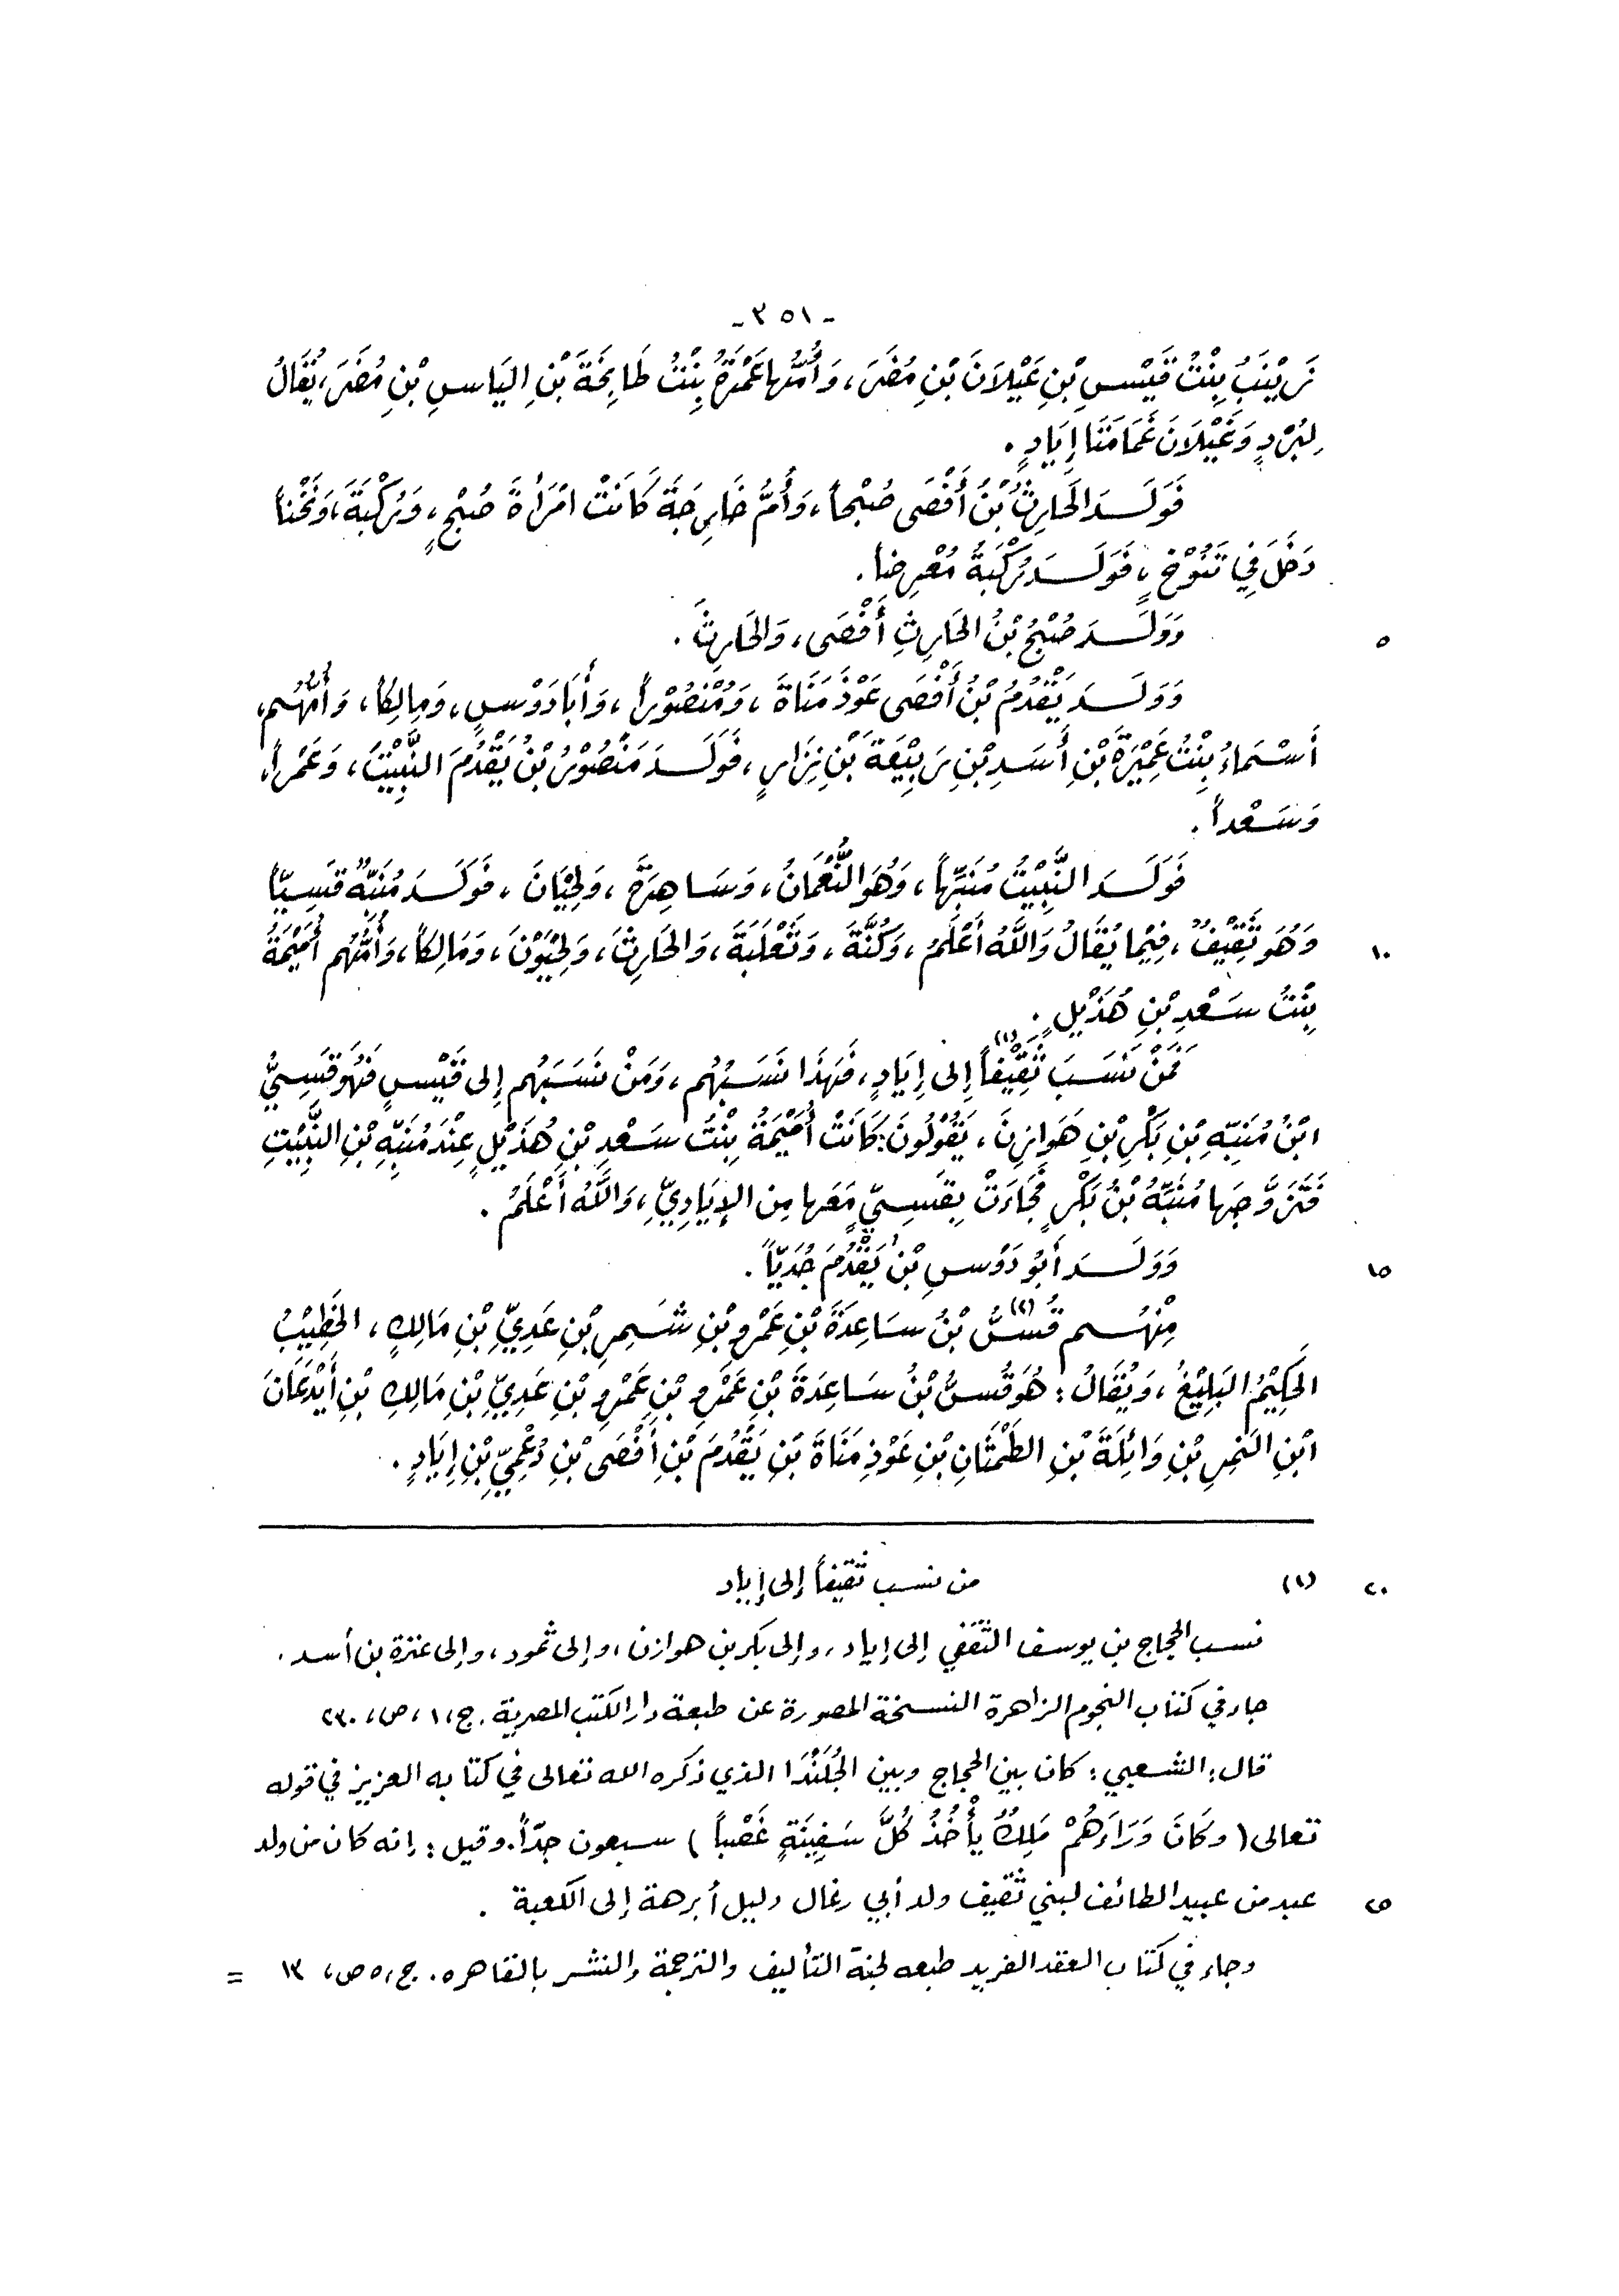 - ٣٥١ -
زَيْنَبُ بِنْتُ قَيْسِ بْنِ عَيْلَانَ بْنِ مُضَرَ، وَأُمُّهَا عَمْرَةُ بِنْتُ طَابِخَةَ بْنِ اليَاسِ بْنِ مُضَرَ، يُقَالُ
لِبُرْدٍ وَغَيْلَانَ غَمَامَتَا إِيَادٍ.
فَوَلَدَ الحَارِثُ بْنُ أَفْصَى صُبْحاً، وَأُمُّ خَارِجَةَ كَانَتْ امْرَأةَ صُبْحٍ، وَرُكْبَةَ، وَنَحْناً
دَخَلَ فِي تَنُوْخٍ، فَوَلَدَ رُكْبَةُ مُعْرِضاً.
٥ وَوَلَدَ صُبْحُ بْنُ الحَارِثِ أَفْصَى، وَالحَارِثَ.
وَوَلَدَ يَقْدُمُ بْنُ أَفْصَى عَوْذَ مَنَاةَ، وَمُنْصُوْراً، وَأَبَا دَوْسٍ، وَمَالِكاً، وَأُمُّهُم،
أَسْمَاءُ بِنْتُ عَمِيْرَةَ بْنِ أَسَدِ بْنِ رَبِيْعَةَ بْنِ نِزَارٍ، فَوَلَدَ مَنْصُوْرُ بْنُ يَقْدُمَ النَّبِيْتَ، وَعَمْراً،
وَسَعْداً.
فَوَلَدَ النَّبِيْتُ مُنَبِّهاً، وَهُوَ النُّعْمَانُ، وَسَاهِرَةَ، وَلِحْيَانَ، فَوَلَدَ مُنَبِّهٌ قَسِيّاً
١٠ وَهُوَ ثَقِيْفٌ، فِيْمَا يُقَالُ وَاللَّهُ أَعْلَمُ، وَكُنَّةَ، وَثَعْلَبَةَ، وَالحَارِثَ، وَلِحْيَوْنَ، وَمَالِكاً، وَأُمُّهُم أُمَيْمَةُ
بِنْتُ سَعْدِ بْنِ هُذَيْلٍ.
فَمَنْ نَسَبَ ثَقِيْفاً(١) إِلى إِيَادٍ، فَهَذَا نَسَبُهُم، وَمَنْ نَسَبَهُم إِلى قَيْسٍ فَهُوَ قَسِيُّ
ابْنُ مُنَبِّهِ بْنِ بَكْرِ بْنِ هَوَازِنَ، يَقُوْلُونَ: كَانَتْ أُمَيْمَةُ بِنْتُ سَعْدِ بْنِ هُذَيْلٍ عِنْدَ مُنَبِّهِ بْنِ النَّبِيْتِ
فَتَزَوَّجَهَا مُنَبِّهُ بْنُ بَكْرٍ فَجَاءَتْ بِقَسِيٍّ مَعَهَا مِنَ الإِيَادِيِّ، وَاللَّهُ أَعْلَمُ.
١٥ وَوَلَدَ أَبُو دَوْسِ بْنُ يَقْدُمَ جُدَيّاً.
مِنْهُم قُسُّ(٢) بْنُ سَاعِدَةَ بْنِ عَمْرِو بْنِ شَمِرِ بْنِ عَدِيِّ بْنِ مَالِكٍ، الخَطِيْبُ
الحَكِيْمُ البَلِيْغُ، وَيُقَالُ: هُوَ قُسُّ بْنُ سَاعِدَةَ بْنِ عَمْرِو بْنِ عَمْرِو بْنِ عَدِيِّ بْنِ مَالِكِ بْنِ أَيْدَعَانَ
ابْنِ النَمِرِ بْنِ وَائِلَةَ بْنِ الطَمْثَانِ بْنِ عَوْذِ مَنَاةَ بْنِ يَقْدُمَ بْنِ أَفْصَى بْنِ دُعْمِيِّ بْنِ إِيَادٍ.
٢٠ (١) من نسب ثقيفاً إلى إياد
نسب الحجاج بن يوسف الثقفي إلى إياد، وإلى بكر بن هوازن، وإلى ثمود، وإلى عنزة بن أسد.
جاء في كتاب النجوم الزاهرة النسخة المصورة عن طبعة دار الكتب المصرية. ج، ١، ص، ٢٣٠
قال: الشعبي: كان بين الحجاج وبين الجُلَنْدَا الذي ذكره الله تعالى في كتابه العزيز في قوله
تعالى ( وَكَانَ وَرَاءَهُمْ مَلِكٌ يَأْخُذُ كُلَّ سَفِينَةٍ غَصْباً ) سبعون جدّاً. وقيل: إنه كان من ولد
٢٥ عبد من عبيد الطائف لبني ثقيف ولد أبي رغال دليل أبرهة إلى الكعبة.
وجاء في كتاب العقد الفريد طبعه لجنة التأليف والترجمة والنشر بالقاهره. ج، ٥ ص، ١٣ =